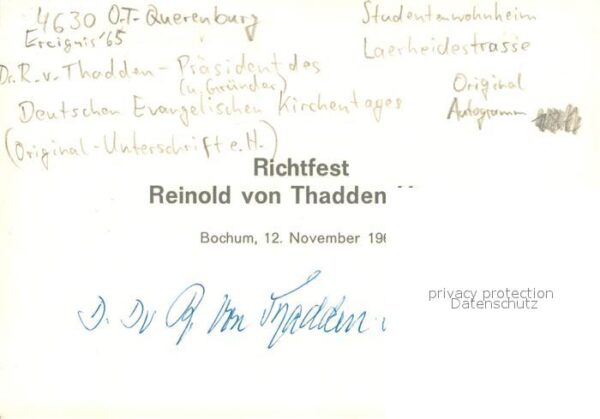 4630 O.-T. Querenburg
Ereignis '65
Dr. R. v. Thadden - Präsident des
(u. Gründer)
Deutschen Evangelischen Kirchentages
(Original-Unterschrift e.H.)
Studentenwohnheim
Laerheidestrasse
Original
Autogramm
Richtfest
Reinold von Thadden
Bochum, 12. November 196
D. Dr R. von Thadden
privacy protection
Datenschutz